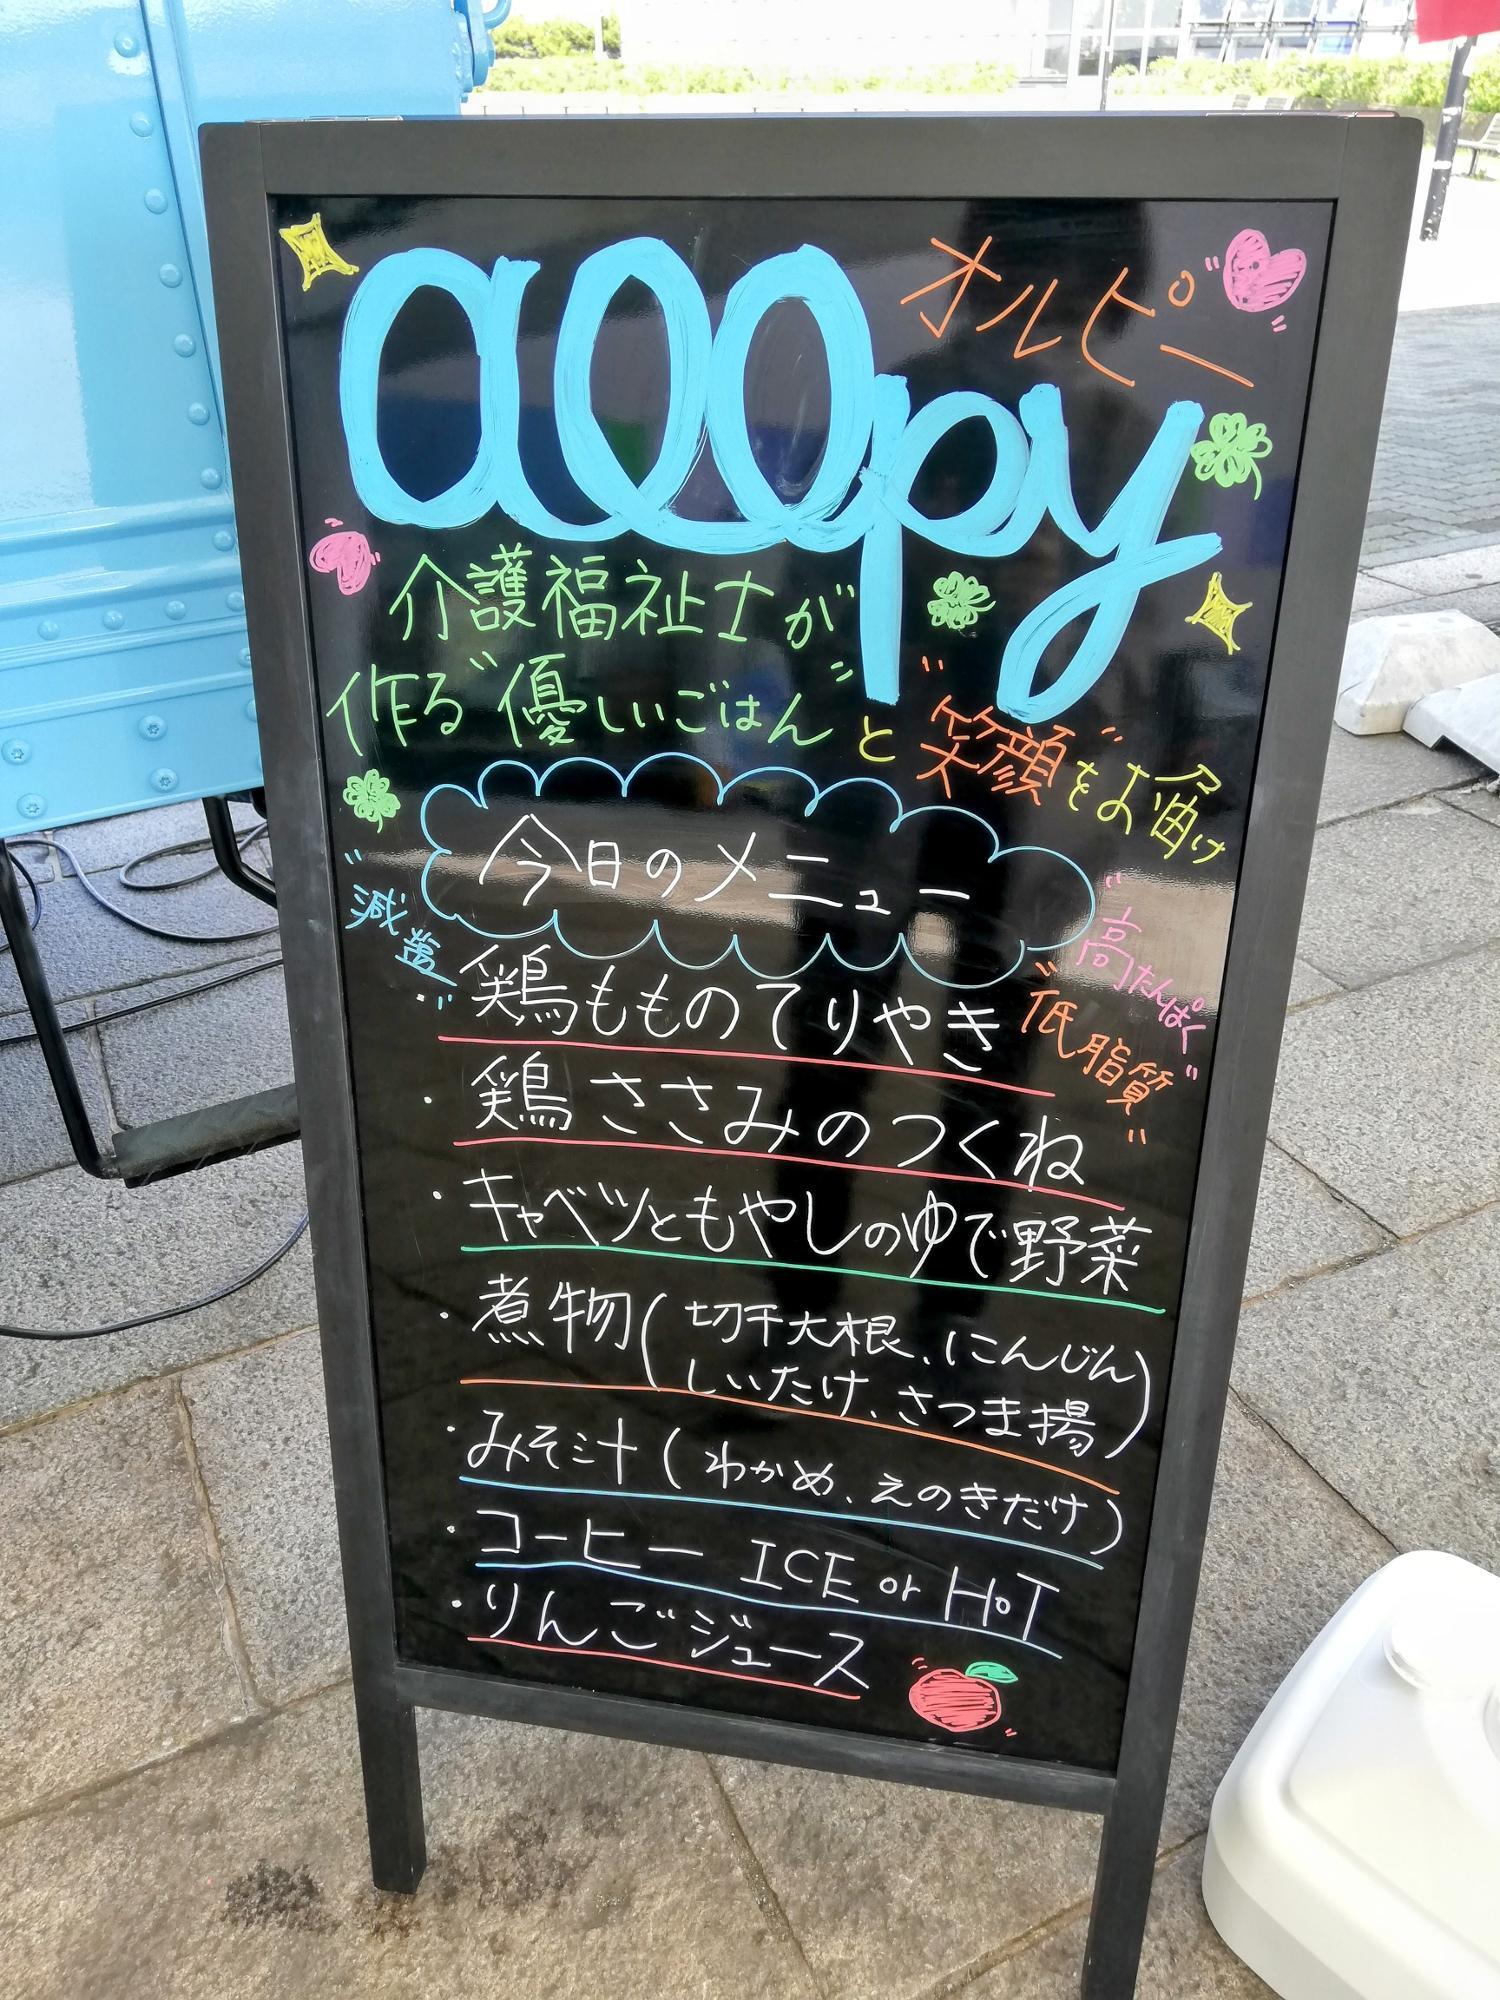 allpy
オルピー
介護福祉士が
作る"優しいごはん"と"笑顔"をお届け
今日のメニュー
"減塩"
"高たんぱく"
"低脂質"
・鶏もものてりやき
・鶏ささみのつくね
・キャベツともやしのゆで野菜
・煮物(切干大根、にんじん
しいたけ、さつま揚)
・みそ汁(わかめ、えのきだけ)
・コーヒー ICE or HOT
・りんごジュース